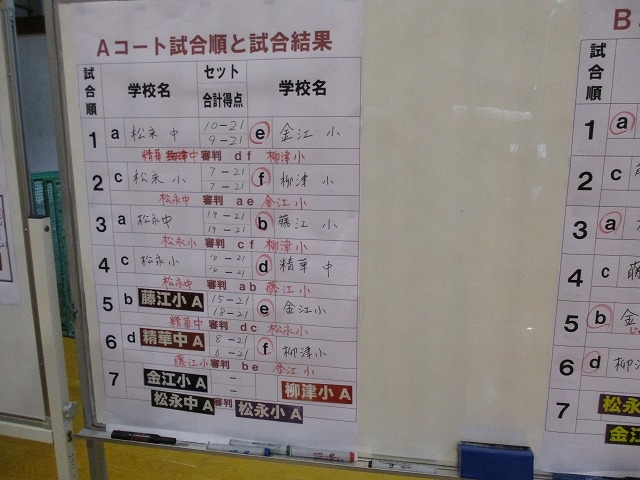 Aコート試合順と試合結果
試合順 学校名 セット 合計得点 学校名
1 a 松永中 10-21 9-21 e 金江小
精華中 審判 d f 柳津小
2 c 松永小 7-21 7-21 f 柳津小
松永中 審判 a e 金江小
3 a 松永中 19-21 19-21 b 藤江小
松永小 審判 c f 柳津小
4 c 松永小 -21 -21 d 精華中
松永中 審判 a b 藤江小
5 b 藤江小A 15-21 18-21 e 金江小
精華中 審判 d c 松永小
6 d 精華中A 8-21 6-21 f 柳津小
藤江小 審判 b e 金江小
7 金江小A - - 柳津小A
松永中A 審判 松永小A
B
試合順
1 a
2 c
3 a
4 c 藤
5 b 金
6 d 柳
7 松永
金江